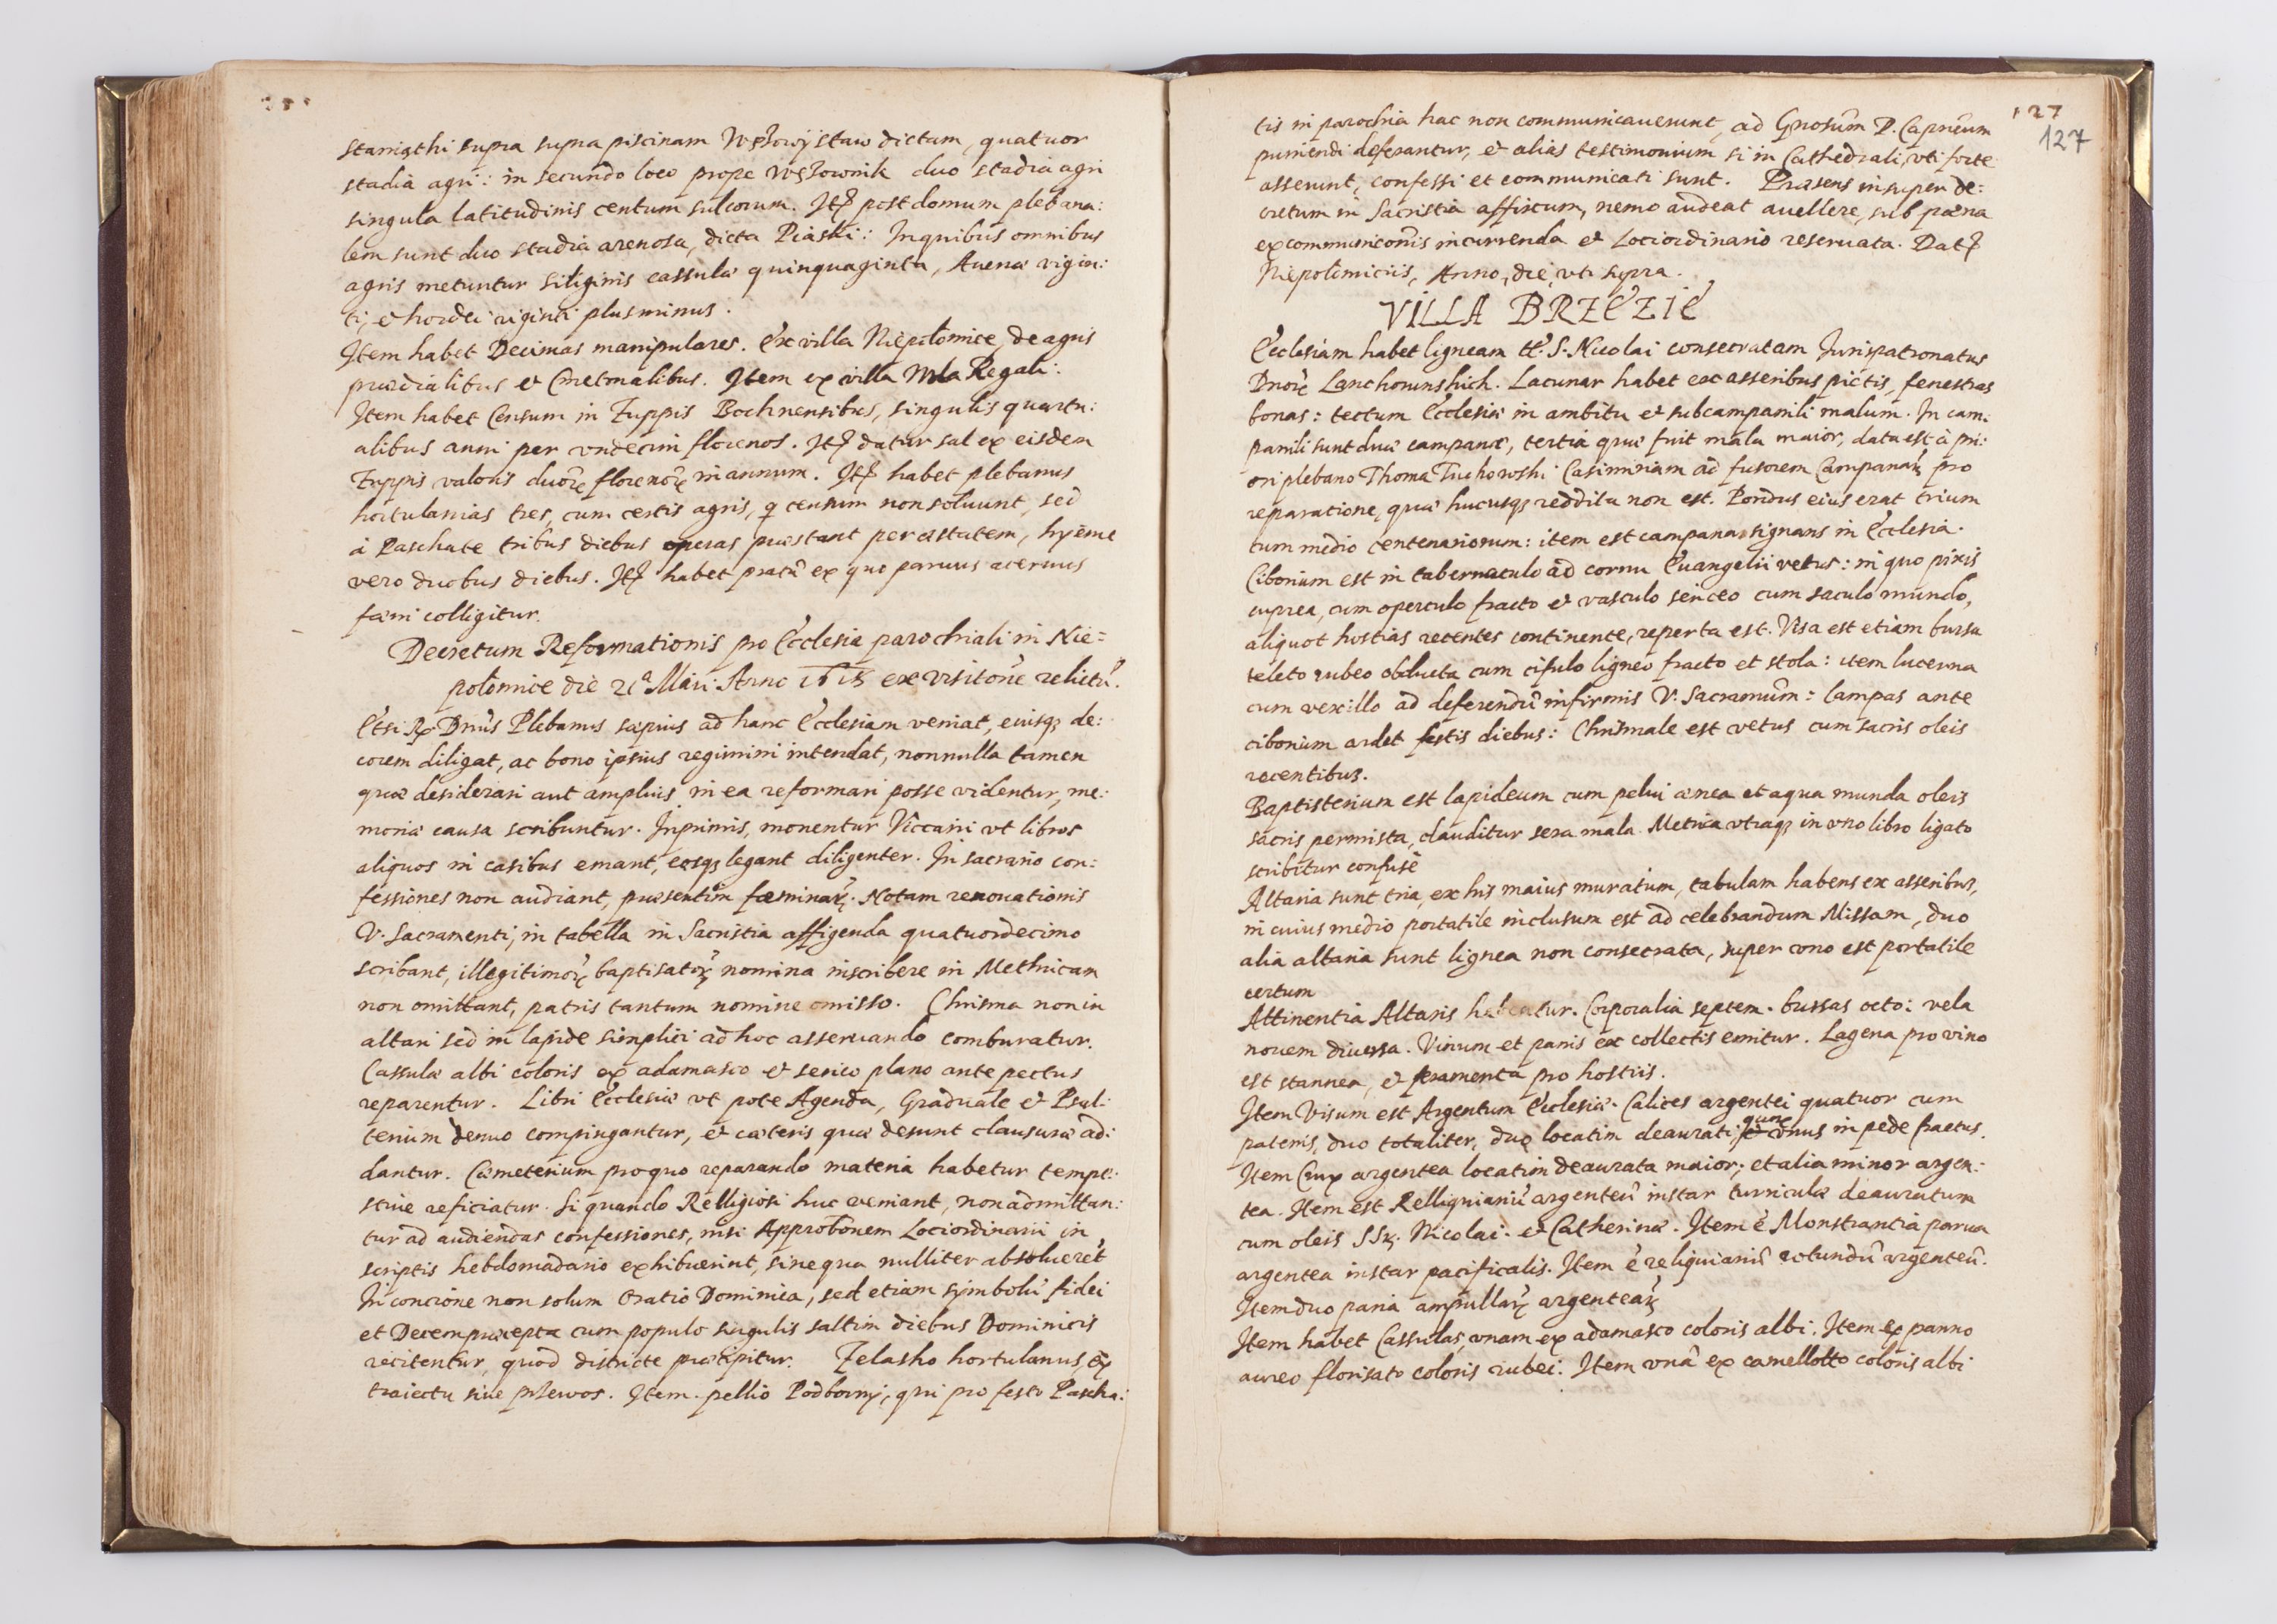 staniąthi supra supra piscinam Węzowÿ staw dictam, quatuor
stadia agri: in secundo loco prope Węzownik duo stadia agri
singula latitudinis centum sulcorum. Itẽ post domum plebana:
lem sunt duo stadia arenosa, dicta Piaski: In quibus omnibus
agris metuntur siliginis cassulæ quinquaginta, Auenæ vigin:
ti, et hordei viginti plus minus.
Item habet Decimas manipulares. Ex villa Niepolomice, de agris
prædialibus et Cmetonalibus. Item ex villa Wola Regali:
Item habet Censum in Zuppis Bochnensibus, singulis quartu:
alibus anni per vndecim florenos. Itẽ datur sal ex eisdem
Zuppis valoris duorũ florenorũ in annum. Itẽ habet plebanus
hortulanias tres, cum certis agris, q censum non soluunt, sed
à Paschate tribus diebus operas præstant per æstatem, hyeme
vero duobus diebus. Itẽ habet pratũ ex quo paruus aceruus
fæni colligitur.
Decretum Reformationis pro Ecclesia parochiali in Nie=
polomice die 21ª Maii Anno 1618 ex visitone relictũ.
Etsi Rx Dnus Plebanus sæpius ad hanc Ecclesiam veniat, eiusq de:
corem diligat, ac bono ipsius regimini intendat, nonnulla tamen
quæ desiderari aut amplius in ea reformari posse videntur, me:
moriæ causa scribuntur. Inprimis, monentur Viccarii vt libros
aliquos in casibus emant, eosq legant diligenter. In sacrario con:
fessiones non audiant, præsertim fæminarũ. Notam renouationis
V. Sacramenti, in tabella in Sacristia affigenda quatuordecimo
scribant, illegitimorũ baptisatorũ nomina inscribere in Methricam
non omittant, patris tantum nomine omisso. Chrisma non in
altari sed in lapide simplici ad hoc asseruando comburatur.
Cassulæ albi coloris ex adamasco et serico plano ante pectus
reparentur. Libri Ecclesiæ vt pote Agenda, Graduale et Psal:
terium denuo compingantur, et cæteris quæ desunt clausuræ ad:
dantur. Cæmeterium pro quo reparando materia habetur tempe:
stiue reficiatur. Si quando Relligiosi huc veniant, non admittan:
tur ad audiendas confessiones, nisi Approbonem Loci ordinarii in
scriptis hebdomadario exhibuerint, sine qua nulliter absoluerẽt
In concione non solum Oratio Dominica, sed etiam symbolũ fidei
et Decem præcepta cum populo singulis saltim diebus Dominicis
recitentur, quod districte præcipitur. Zelasko hortulanus ex
traiectu siue przewos. Item pellio Podborny, qui pro festo Pascha:
127
127
tis in parochia hac non communicauerunt, ad Gnosum D. Capneum
puniendi deferantur, et alias testimonium si in Cathedrali, vti forte
asserunt, confessi et communicati sunt. Præsens insuper de:
cretum in Sacristia affixum, nemo audeat auellere, sub pæna
excommuniconis incurrenda et Loci ordinario reseruata. Datẽ
Niepolomiciis, Anno, die, vti supra.
VILLA BRZEZIE
Ecclesiam habet ligneam tt. S. Nicolai consecratam Iurispatronatus
Dnorũ Lanchorunskich. Lacunar habet ex asseribus pictis, fenestras
bonas: tectum Ecclesiæ in ambitu et sub campanili malum. In cam:
panili sunt duæ campanæ, tertia quæ fuit mala maior, data est à pri:
ori plebano Thoma Tuchowski Casimiriam ad fusorem Campanarũ pro
reparatione, quæ hucusq reddita non est. Pondus eius erat trium
cum medio centenariorum: item est campana signans in Ecclesia.
Ciborium est in tabernaculo ad cornu Euangelii vetus: in quo pixis
cuprea, cum operculo fracto et vasculo sericeo cum saculo mundo,
aliquot hostias recentes continente, reperta est. Visa est etiam bursa
teleto rubeo obducta cum cifulo ligneo fracto et stola: item lucerna
cum vexillo ad deferendũ infirmis V. Sacramum: lampas ante
ciborium ardet festis diebus: Chrismale est vetus cum sacris oleis
recentibus.
Baptisterium est lapideum cum pelui ænea et aqua munda oleis
sacris permista, clauditur sera mala. Metrica vtraq in vno libro ligato
scribitur confusè
Altaria sunt tria, ex his maius muratum, tabulam habens ex asseribus,
in cuius medio portatile inclusum est ad celebrandum Missam, duo
alia altaria sunt lignea non consecrata, super vno est portatile
certum
Attinentia Altaris habentur. Corporalia septem. bursas octo: vela
nouem diuersa. Vinum et panis ex collectis emitur. Lagena pro vino
est stannea, et feramenta pro hostiis.
Item Visum est Argentum Ecclesiæ. Calices argentei quatuor cum
patenis, duo totaliter, duo locatim deaurati, vnus in pede fractus.
Item Crux argentea locatim deaurata maior; et alia minor argen:
tea. Item est Relliquiariũ argenteũ instar turriculæ deauratum
cum oleis SSrũ. Nicolai et Catherinæ. Item ẽ Monstrantia parua
argentea instar pacificalis. Item ẽ reliquiariũ rotundũ argenteũ.
Item duo paria ampullarũ argentearũ
Item habet Cassulas, vnam ex adamasco coloris albi. Item ex panno
aureo florisato coloris rubei. Item vnã ex camellotto coloris albi